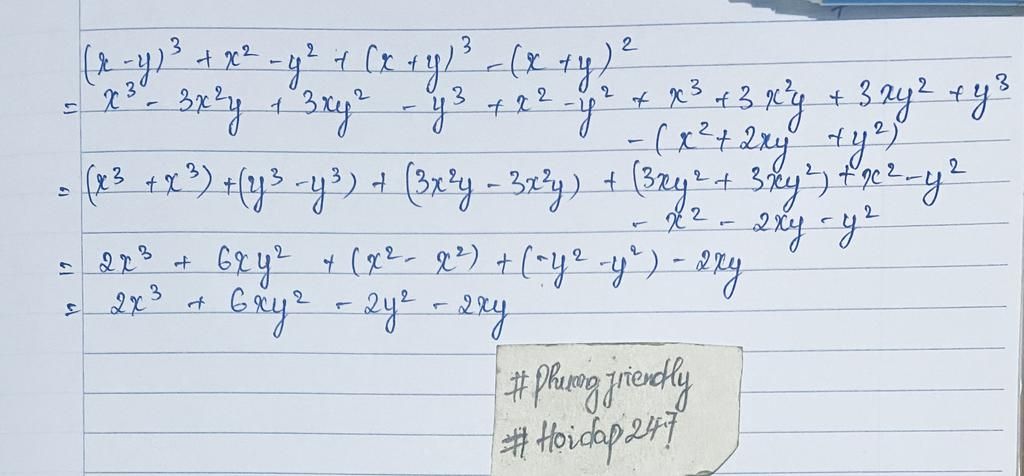 (x - y)³ + x² - y² + (x + y)³ - (x + y)²
= x³ - 3x²y + 3xy² - y³ + x² - y² + x³ + 3x²y + 3xy² + y³
- (x² + 2xy + y²)
= (x³ + x³) + (y³ - y³) + (3x²y - 3x²y) + (3xy² + 3xy²) + x² - y²
- x² - 2xy - y²
= 2x³ + 6xy² + (x² - x²) + (-y² - y²) - 2xy
= 2x³ + 6xy² - 2y² - 2xy
# Phuong friendly
# Hoidap247